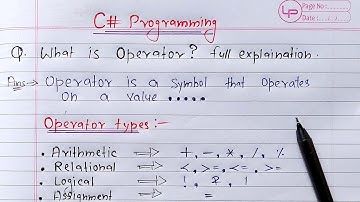 C# Programming
LP Page No:
Date:
Q. What is Operator? full explaination.
Ans:-> Operator is a symbol that operates
on a value .....
Operator types:-
• Arithmetic => +, -, *, /, %
• Relational => <, >=, <=, >=
• Logical => !,
• Assignment =